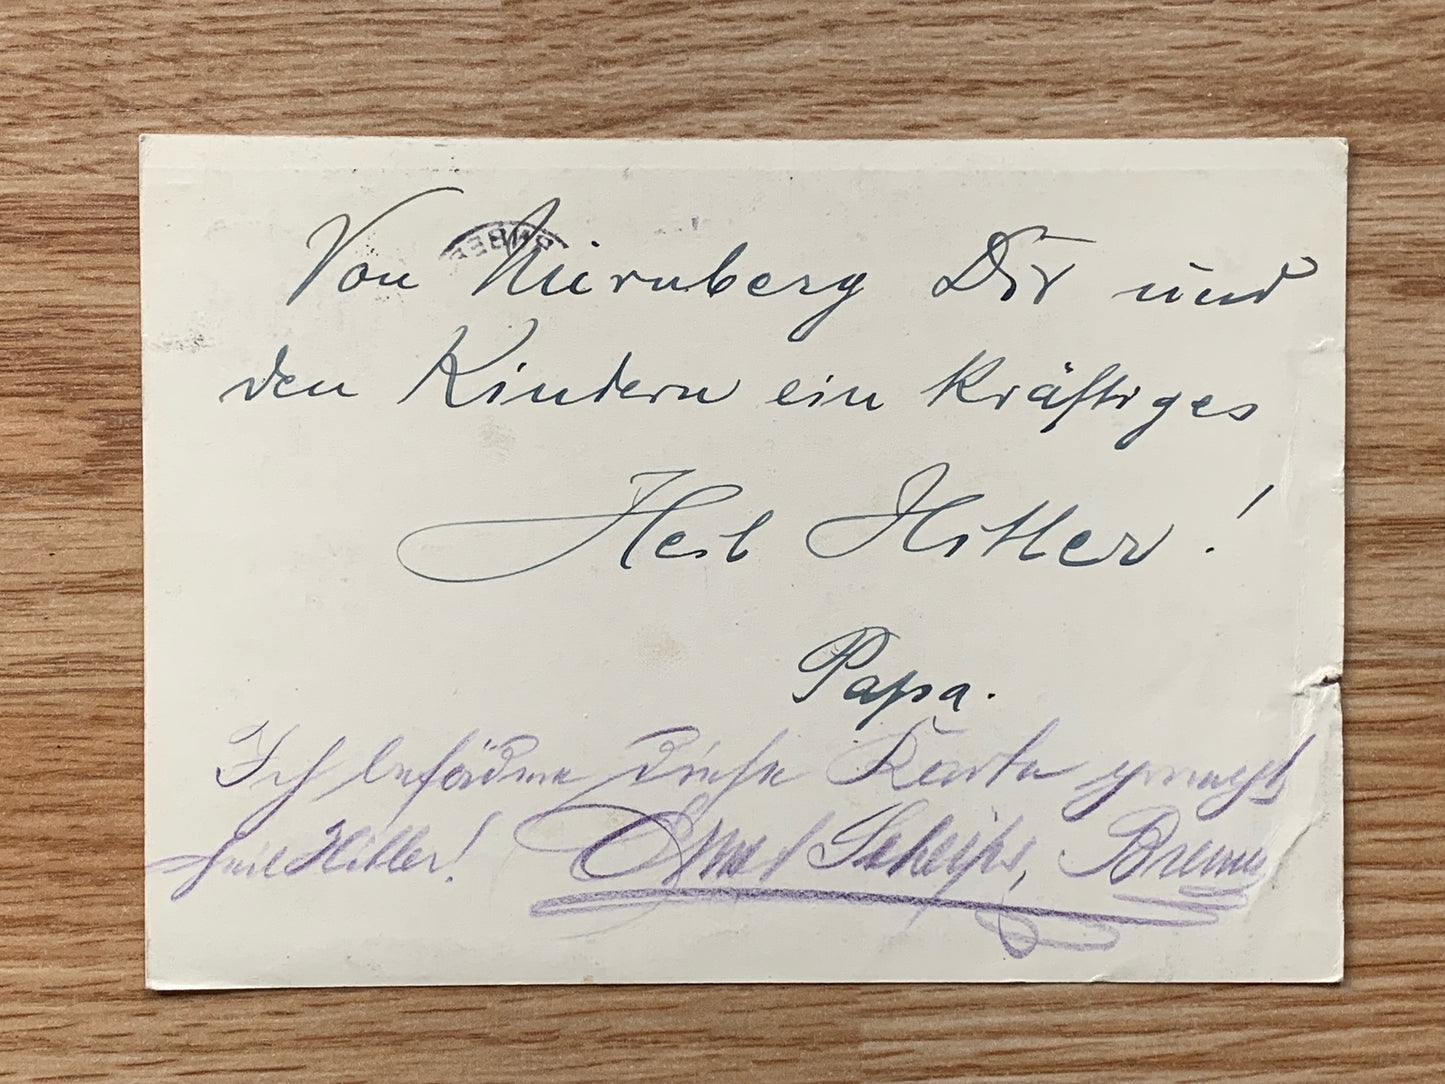 Von Nürnberg Dir und
den Kindern ein kräftiges
Heil Hitler!
Papa.
Ich befördere diese Karte
Heil Hitler! Ernst Bremen